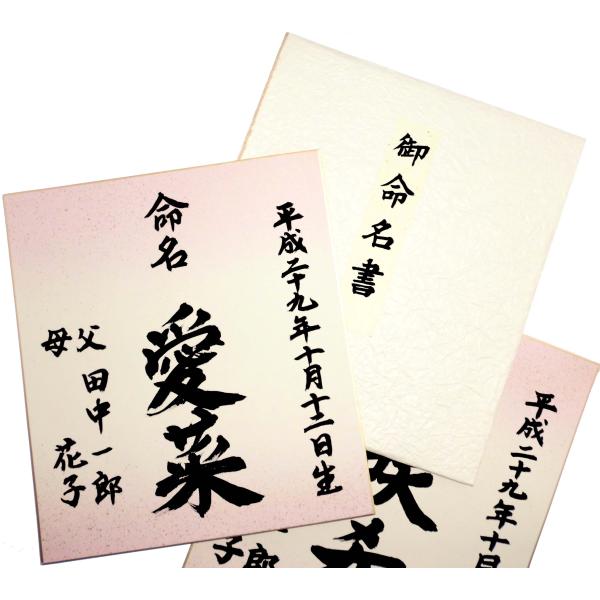 平成二十九年十月十二日生
命名
愛菜
父 田中一郎
母 花子
御命名書
平成二十九年十月
希
郎
子